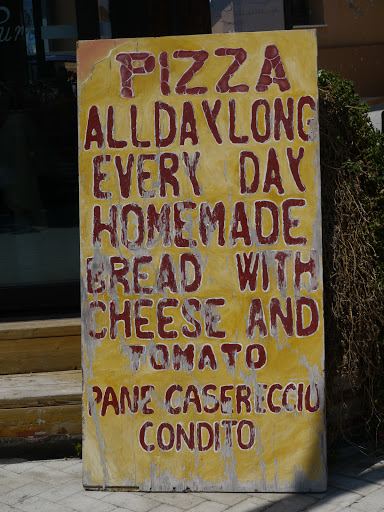 PIZZA
ALLDAYLONG
EVERY DAY
HOMEMADE
BREAD WITH
CHEESE AND
TOMATO
PANE CASERECCIO
CONDITO